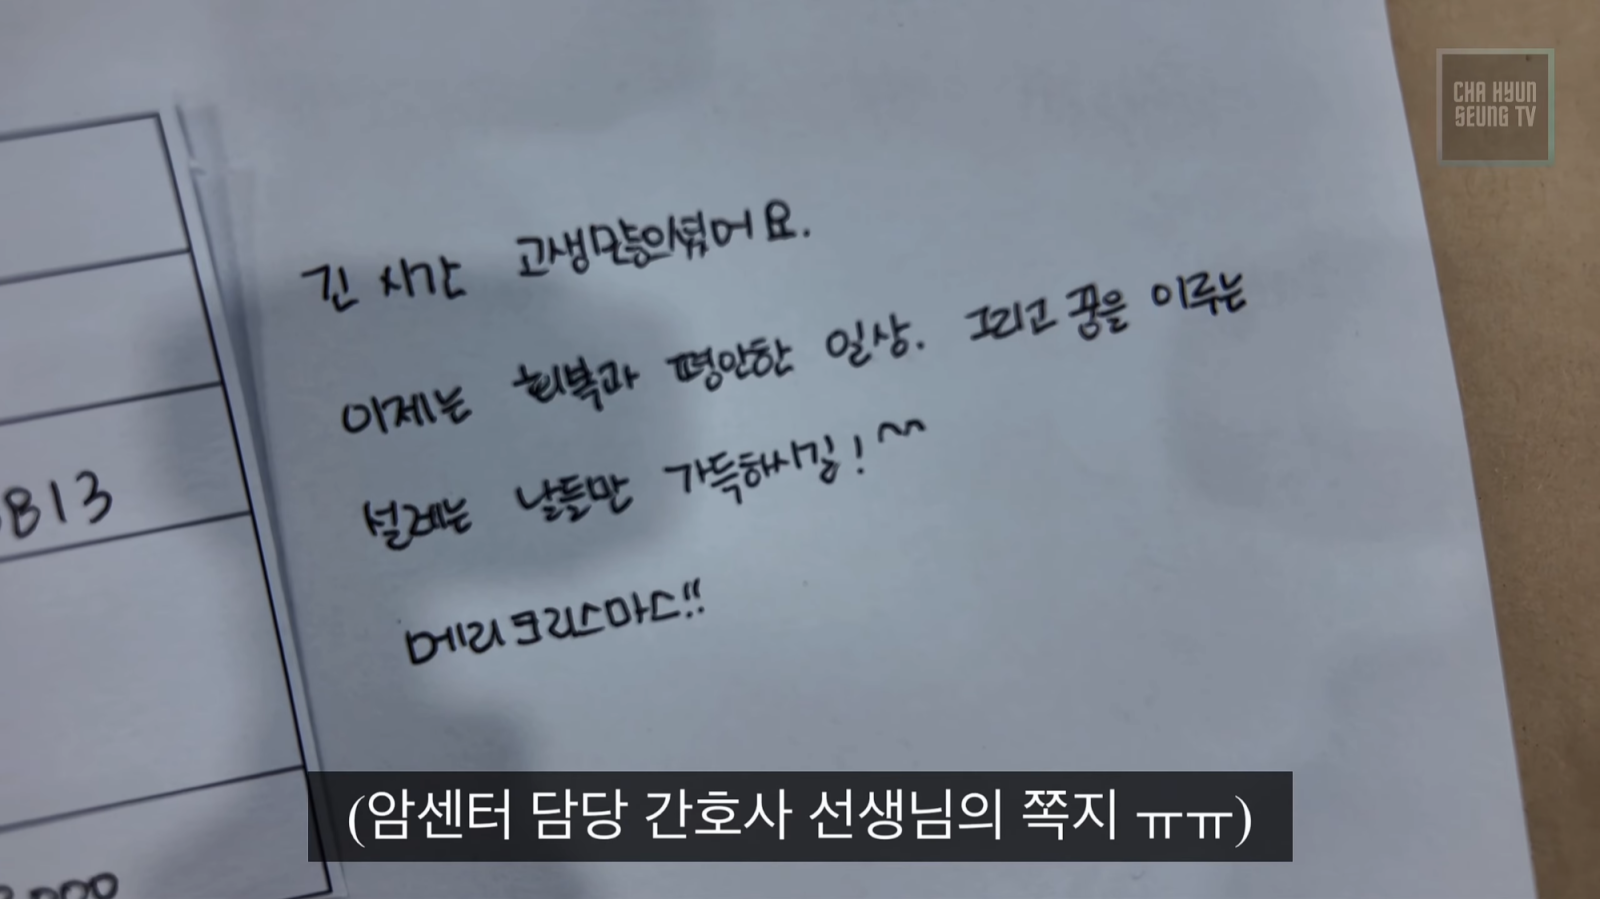 CHA HYUN
SEUNG TV
긴 시간 고생많으셨어요.
이제는 회복과 평안한 일상. 그리고 꿈을 이루는
설레는 날들만 가득해시길! ^^
메리크리스마스!!
813
000
(암센터 담당 간호사 선생님의 쪽지 ㅠㅠ)